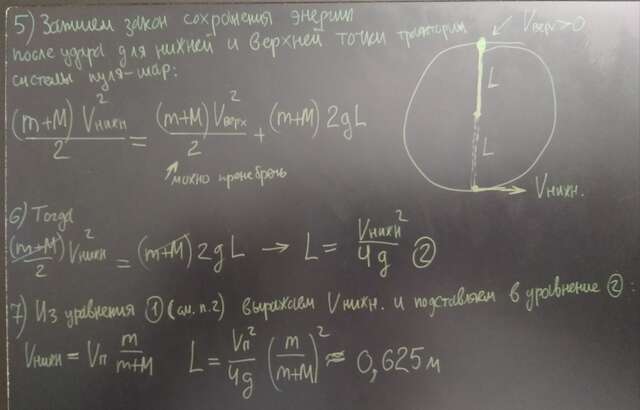 5) Запишем закон сохранения энергии
после удара для нижней и верхней точки траектории
системы пуля-шар:
Vверх>0
L
L
Vнижн.
(m+M) Vнижн² / 2 = (m+M) Vверх² / 2 + (m+M) 2gL
можно пренебречь
6) Тогда
(m+M)/2 Vнижн² = (m+M) 2gL → L = Vнижн² / 4g ②
7) Из уравнения ① (см. п.2) выражаем Vнижн. и подставляем в уравнение ②:
Vнижн = Vп m/(m+M) L = Vп²/4g (m/(m+M))² ≈ 0,625 м